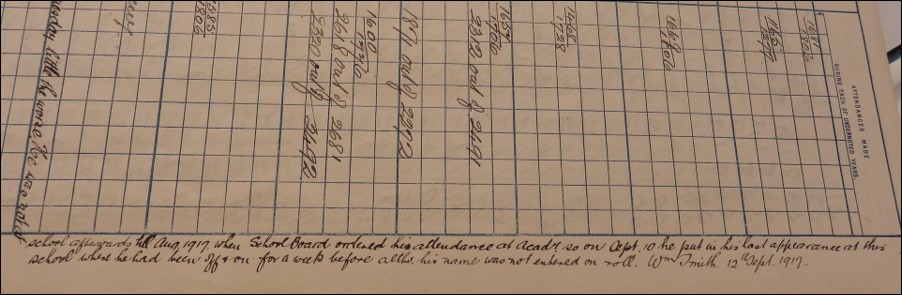 ATTENDANCES MADE
DURING EACH OF UNDERNOTED YEARS.
1706
1468
1728
1654
1706
2312 out of 2491
187 out of 2292
1600
1776
2618 out of 2681
2350 out of 2492
1585
1706
Tuesday little the worse. He was not at
school afterwards till Aug. 1917 when School Board ordered his attendance at Acady so on Sept. 10 he put in his last appearance at this
school where he had been off & on for a week before altho. his name was not entered on roll. Wm Smith. 12th Sept. 1917.